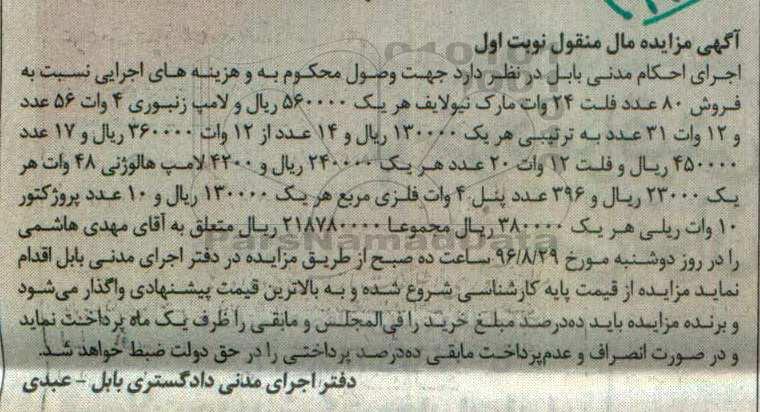 آگهی مزایده مال منقول نوبت اول
اجرای احکام مدنی بابل در نظر دارد جهت وصول محکوم به و هزینه های اجرایی نسبت به
فروش ۸۰ عدد فلت ۲۴ وات مارک نیولایف هر یک ۵۶۰۰۰۰ ریال و لامپ زنبوری ۴ وات ۵۶ عدد
و ۱۲ وات ۳۱ عدد به ترتیبی هر یک ۱۳۰۰۰۰ ریال و ۱۴ عدد از ۱۲ وات ۳۶۰۰۰۰ ریال و ۱۷ عدد
۴۵۰۰۰۰ ریال و فلت ۱۲ وات ۲۰ عدد هر یک ۲۴۰۰۰۰ ریال و ۴۲۰۰ لامپ هالوژنی ۴۸ وات هر
یک ۲۳۰۰۰ ریال و ۳۹۶ عدد پنل ۴ وات فلزی مربع هر یک ۱۳۰۰۰۰ ریال و ۱۰ عدد پروژکتور
۱۰ وات ریلی هر یک ۳۸۰۰۰۰ ریال مجموعا ۲۱۸۷۸۰۰۰۰ ریال متعلق به آقای مهدی هاشمی
را در روز دوشنبه مورخ ۹۶/۸/۲۹ ساعت ده صبح از طریق مزایده در دفتر اجرای مدنی بابل اقدام
نماید مزایده از قیمت پایه کارشناسی شروع شده و به بالاترین قیمت پیشنهادی واگذار می‌شود
و برنده مزایده باید ده‌درصد مبلغ خرید را فی‌المجلس و مابقی را ظرف یک ماه پرداخت نماید
و در صورت انصراف و عدم‌پرداخت مابقی ده‌درصد پرداختی را در حق دولت ضبط خواهد شد.
دفتر اجرای مدنی دادگستری بابل - عبدی
ParsNamadData